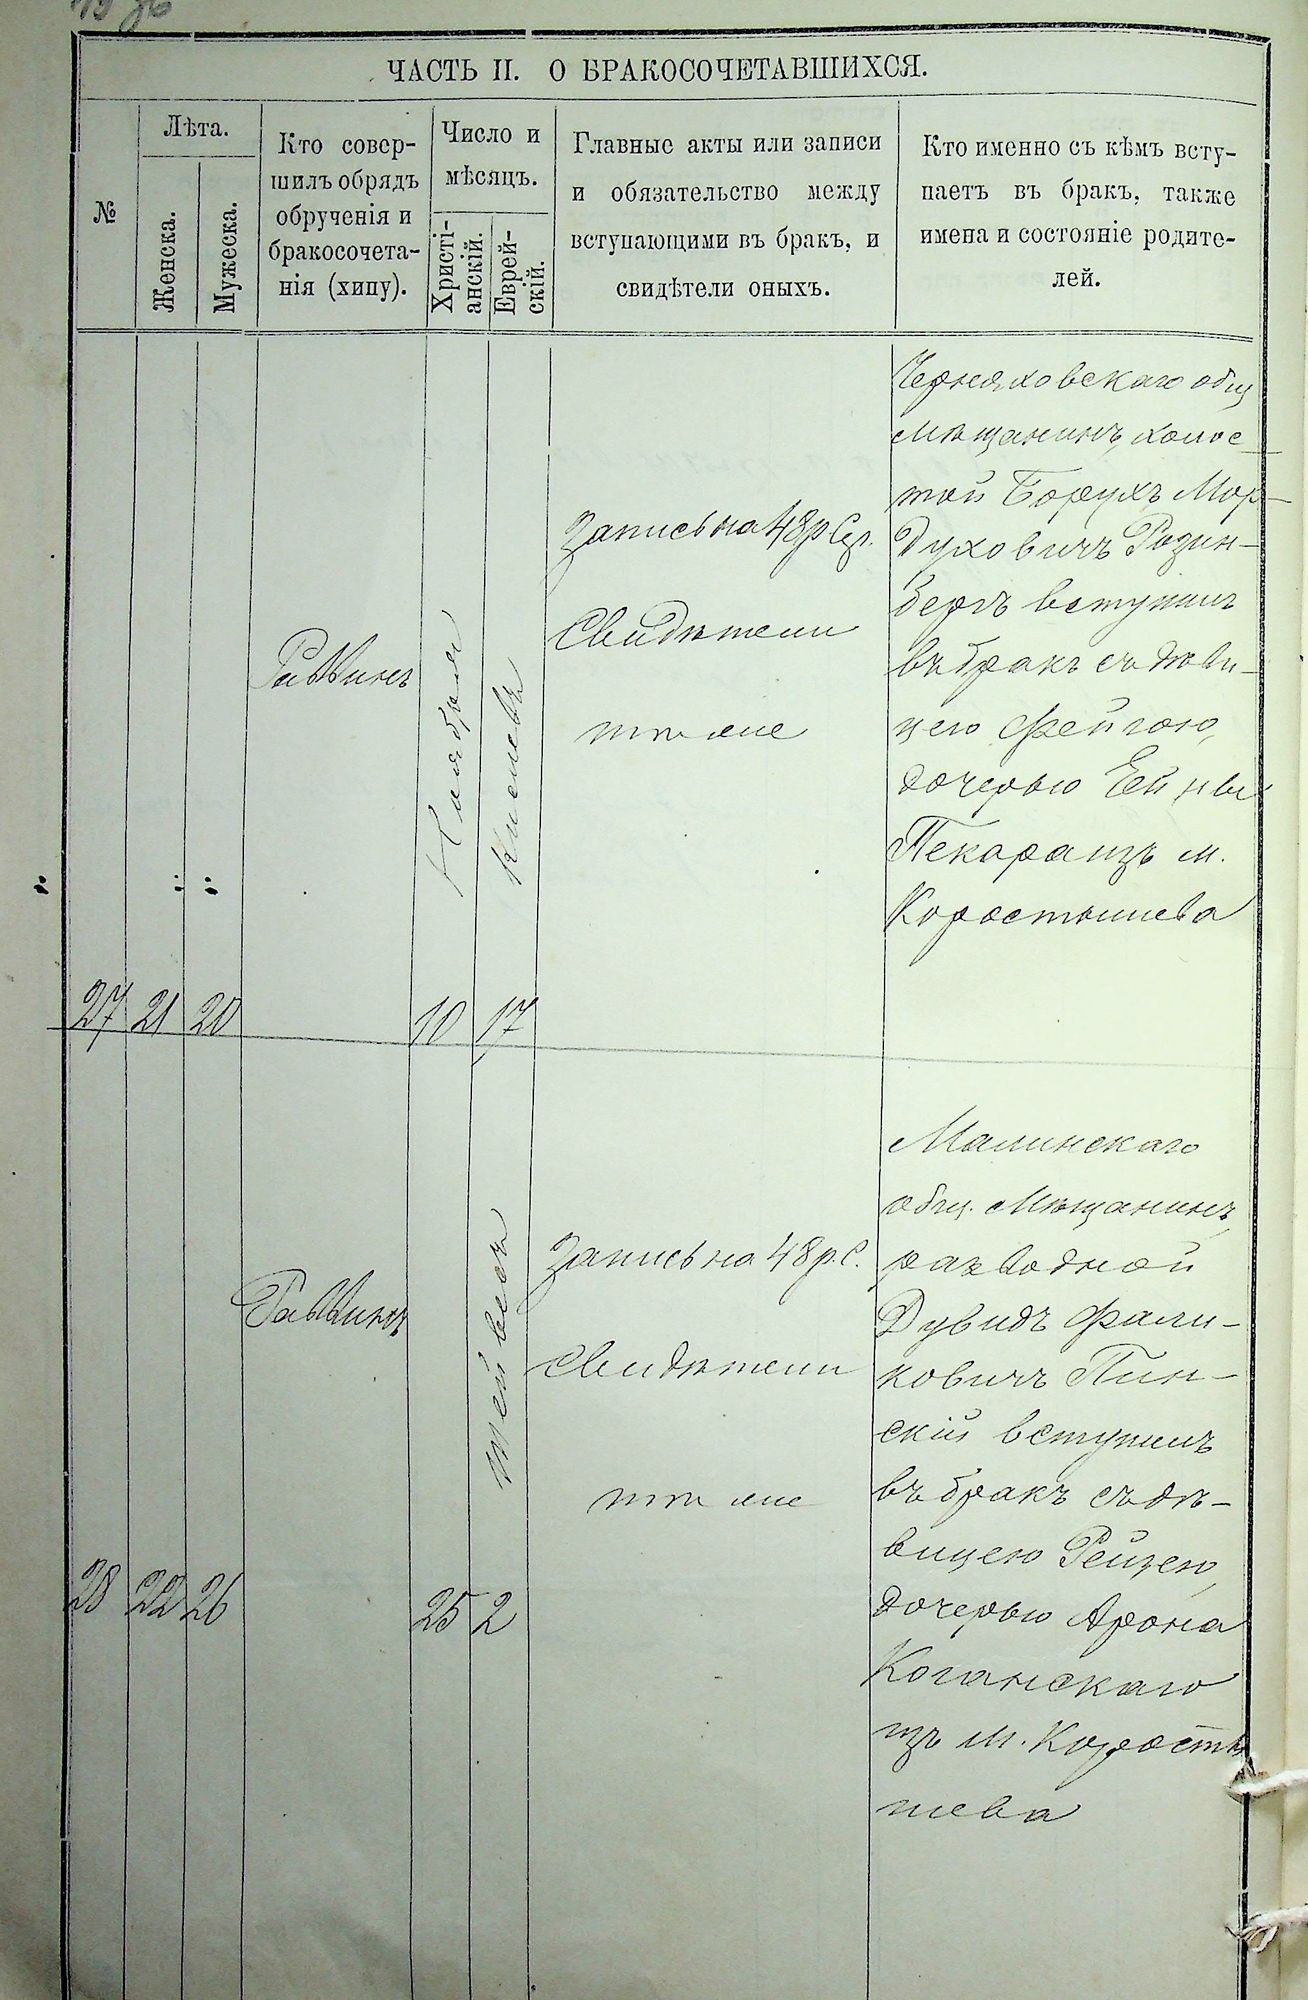 ЧАСТЬ II. О БРАКОСОЧЕТАВШИХСЯ.
№
Лѣта.
Женска.
Мужеска.
Кто совер-
шилъ обрядъ
обрученія и
бракосочета-
нія (хипу).
Число и
мѣсяцъ.
Христі-
анскій.
Еврей-
скій.
Главные акты или записи
и обязательство между
вступающими въ бракъ, и
свидѣтели оныхъ.
Кто именно съ кѣмъ всту-
паетъ въ бракъ, также
имена и состояніе родите-
лей.
27
21
20
Раввинъ
Ноября
10
Кислевъ
17
Запись на 48 р Сер.
Свидѣтели
тѣ же
Черняховскаго общ
мѣщанинъ, холос-
той Борухъ Мор-
духовичъ Розин-
бергъ вступилъ
въ бракъ съ дѣви-
цею Фейгою,
дочерью Ейны
Пекара изъ м.
Коростышева
28
22
26
Раввинъ
25
Тейвесъ
2
Запись на 48 р. С.
Свидѣтели
тѣ же
Малинскаго
общ. мѣщанинъ,
разводной
Дувидъ Фали-
ковичъ Пин-
скій вступилъ
въ бракъ съ дѣ-
вицею Рейзею,
дочерью Арона
Коганскаго
изъ м. Коросты
шева